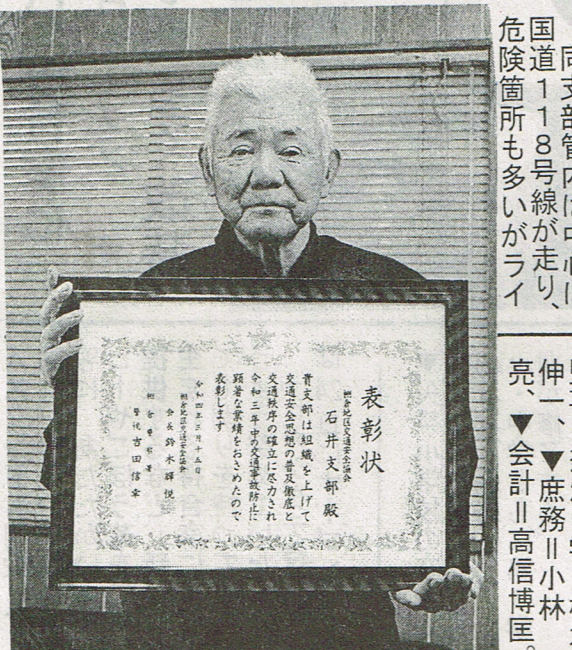 国道118号線が走り、
危険箇所も多いがライ
伸一、▼庶務＝小林
亮、▼会計＝高信博匡。
表彰状
棚倉地区交通安全協会
石井支部殿
貴支部は組織を上げて
交通安全思想の普及徹底と
交通秩序の確立に尽力され
令和三年中の交通事故防止に
顕著な業績をおさめたので
表彰します
令和四年三月十五日
棚倉地区交通安全協会
会長 鈴木輝悦
棚倉警察署
警視 吉田信幸